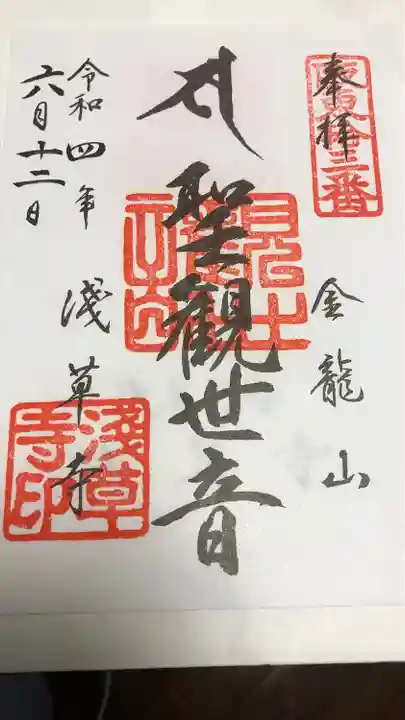 奉拝
坂東拾三番
金龍山
聖観世音
観世音
浅草寺
令和四年
六月十二日
淺草寺印